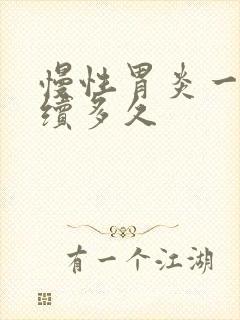 慢性胃炎一
续多久
有一个江湖